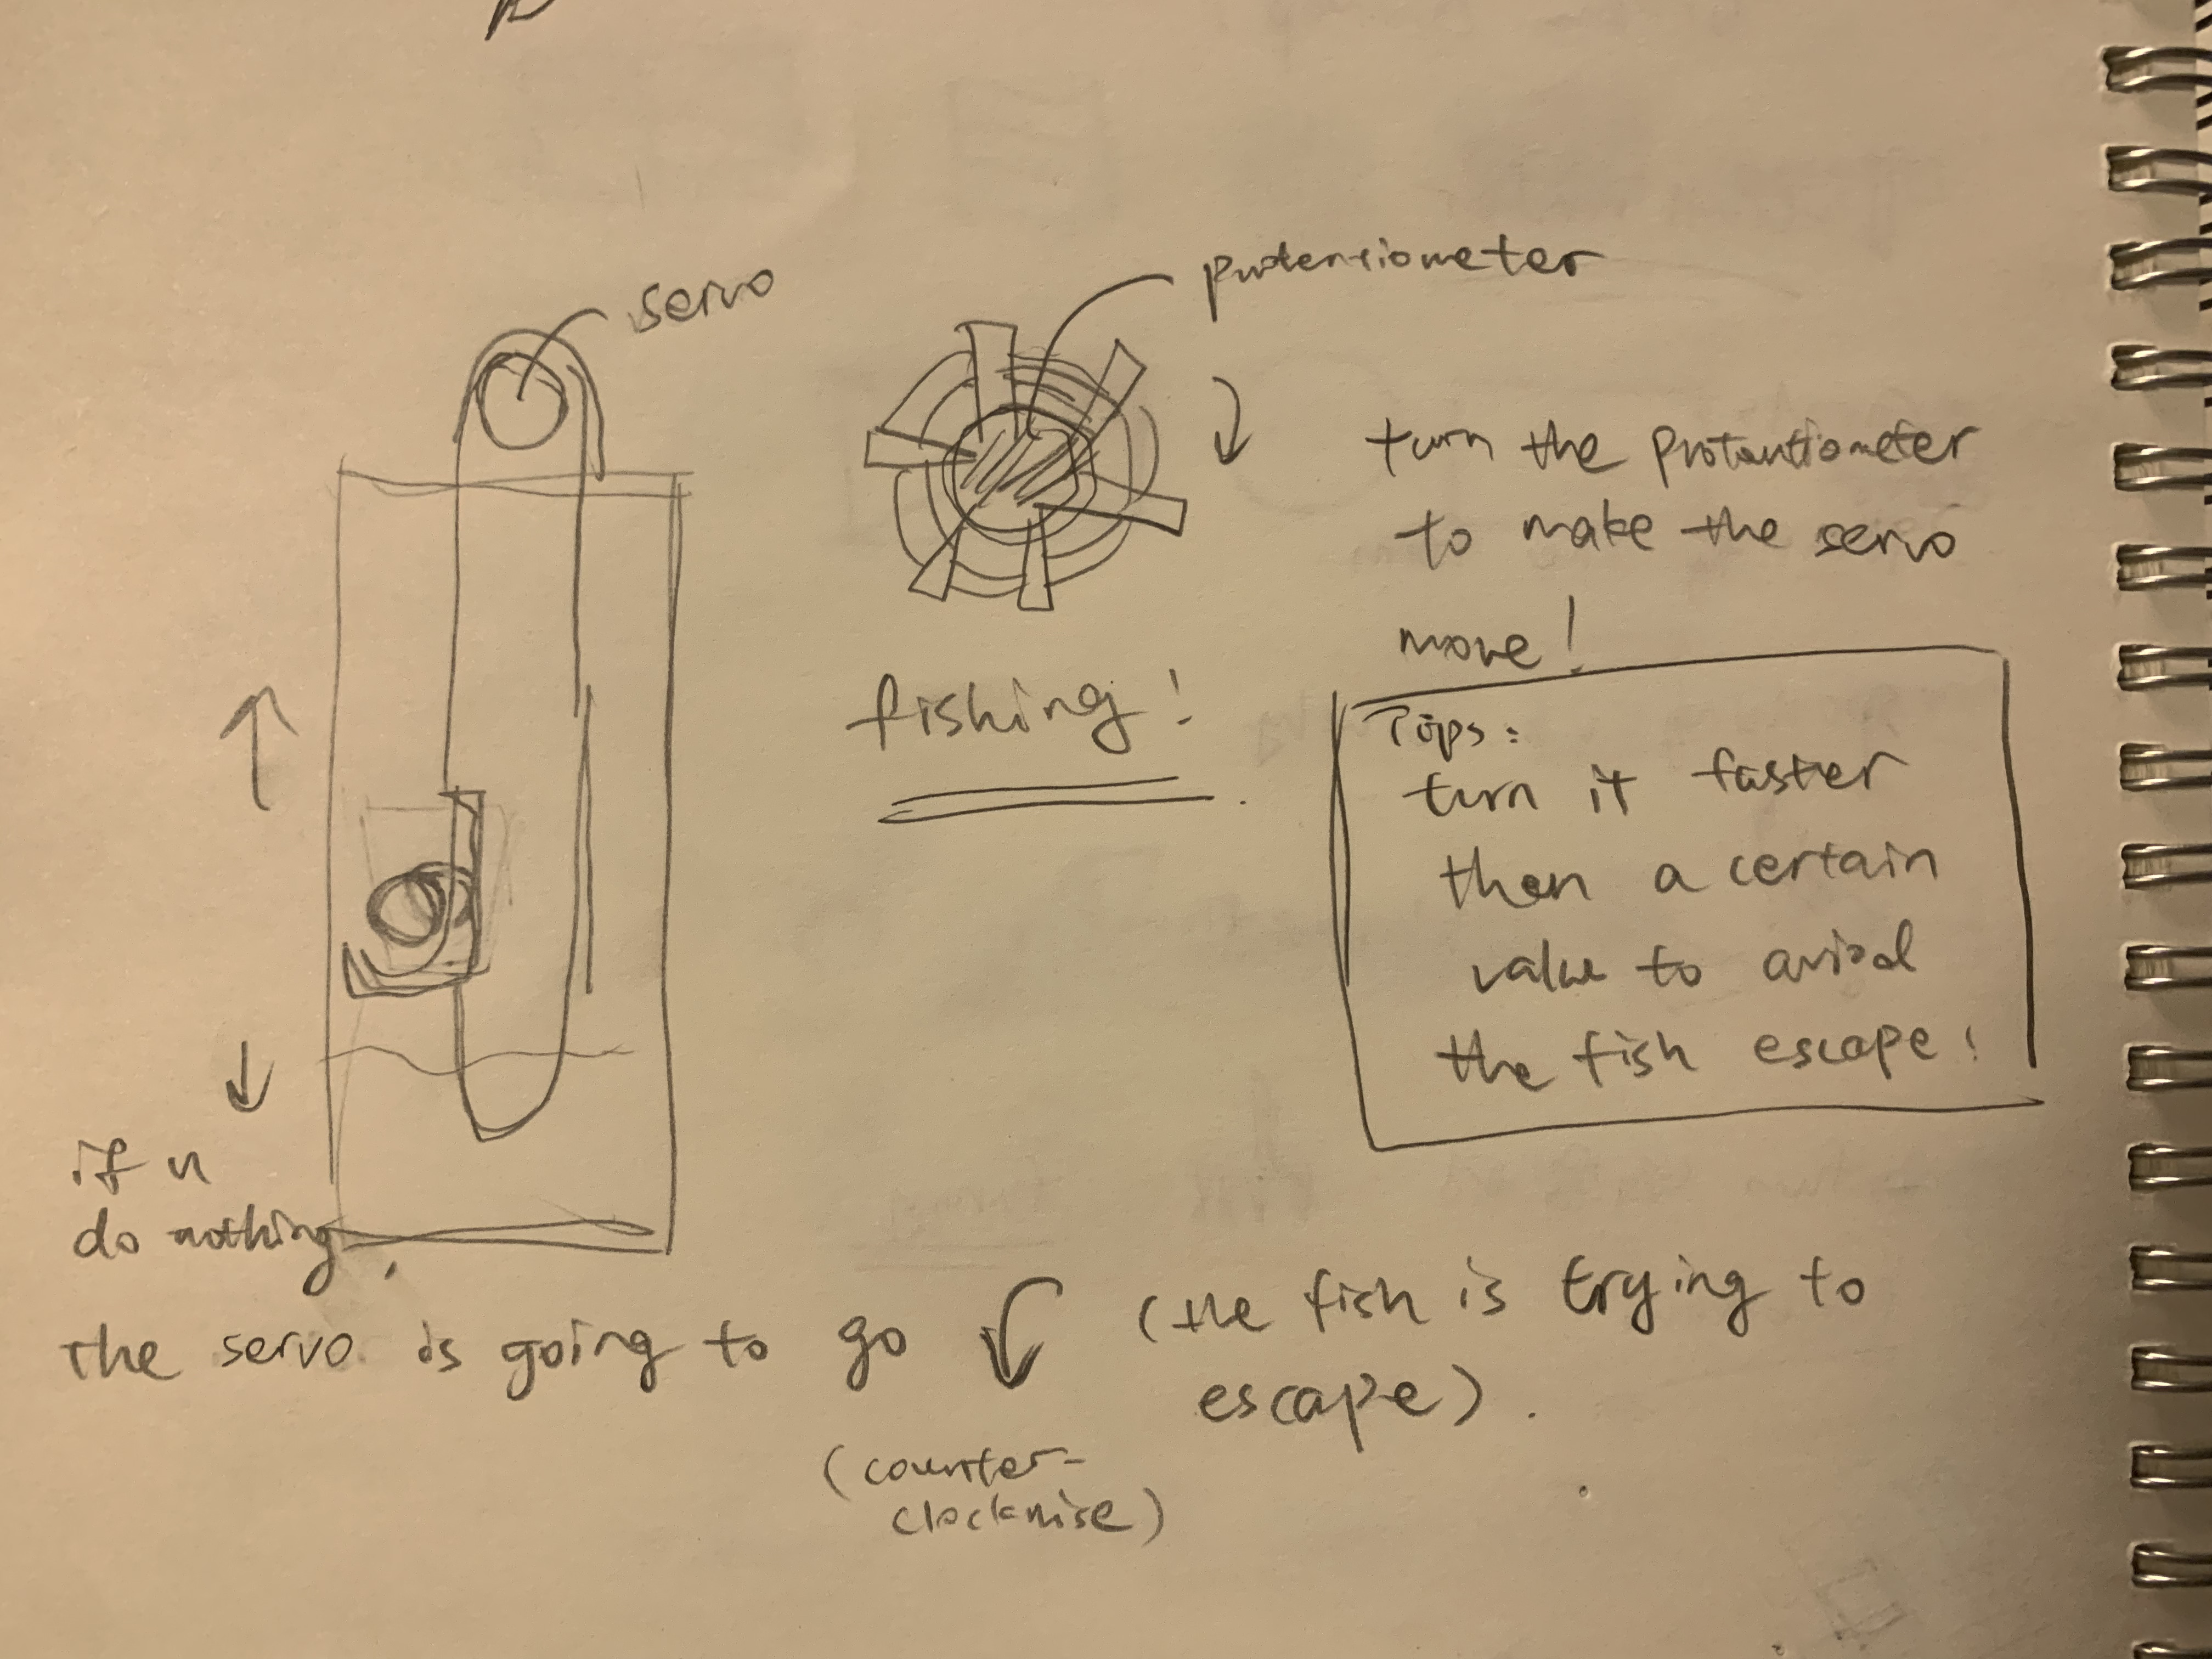 servo
protensiometer
turn the protantiometer
to make the servo
move!
fishing!
Tips:
turn it faster
then a certain
value to aviod
the fish escape!
if u
do nothing,
the servo is going to go (the fish is trying to
escape).
(counter-
clockwise)